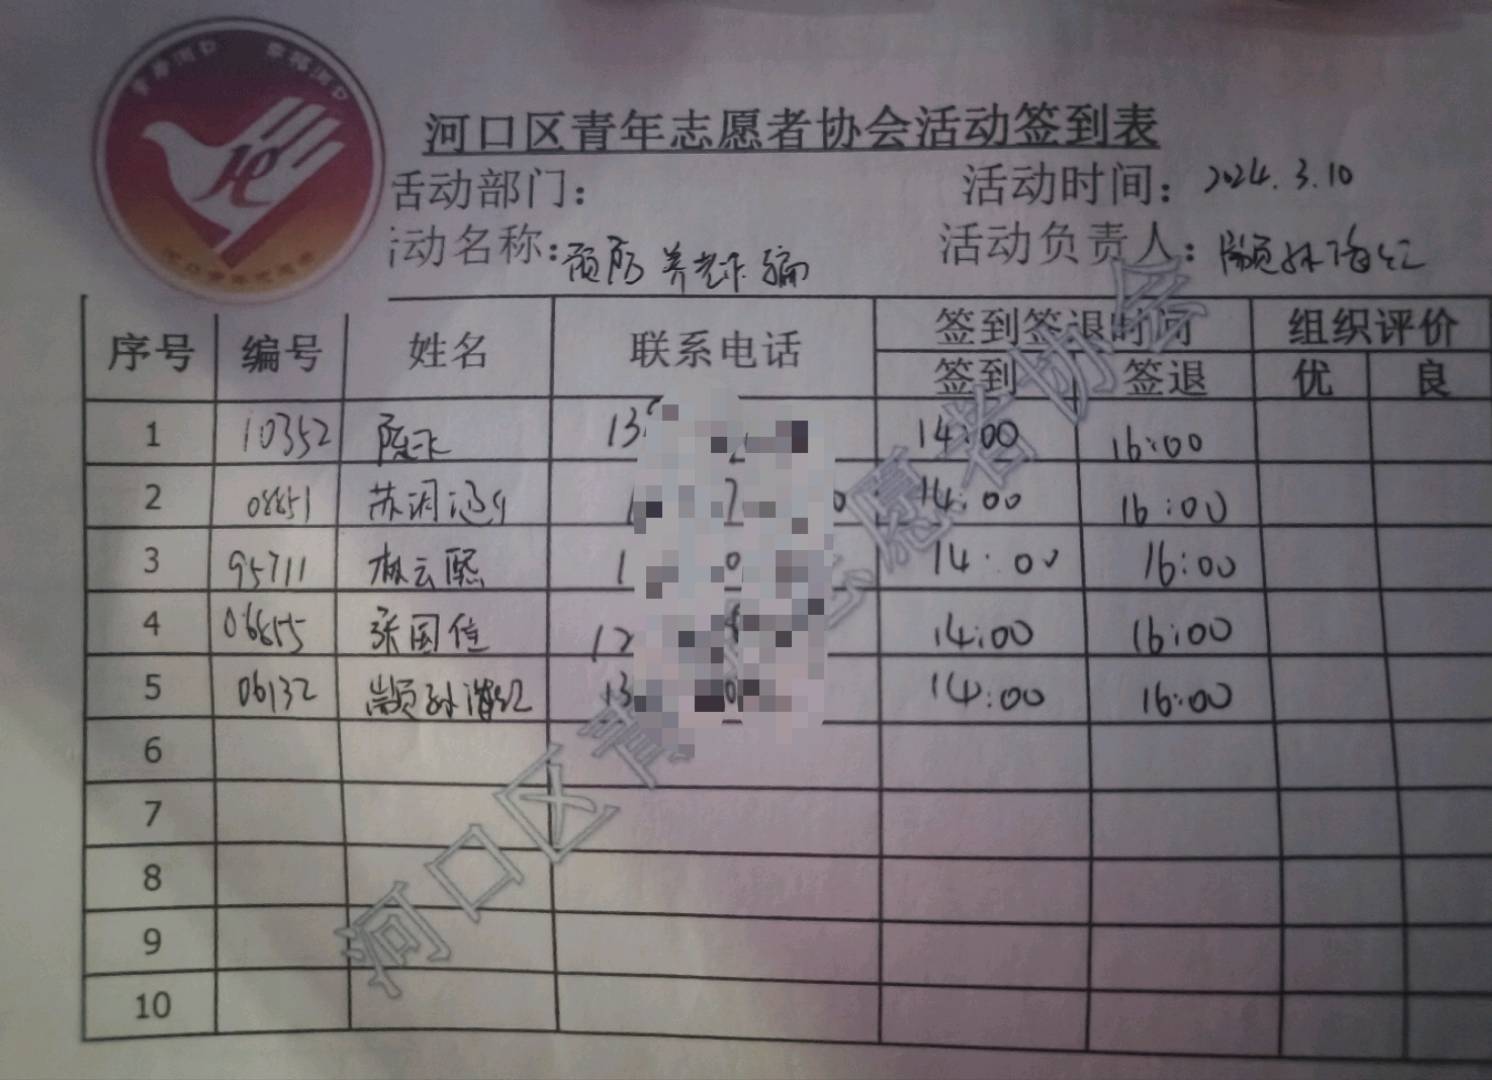 河口区青年志愿者协会活动签到表
活动部门：
活动时间：2024.3.10
活动名称：预防养老诈骗
活动负责人：颛孙海红
序号 编号 姓名 联系电话 签到签退时间 组织评价
签到 签退 优 良
1 10352 陈飞 14:00 16:00
2 08851 苏润 14:00 16:00
3 95711 林云熙 14:00 16:00
4 06855 张国位 14:00 16:00
5 06132 颛孙海红 14:00 16:00
6
7
8
9
10
河口区青年志愿者协会